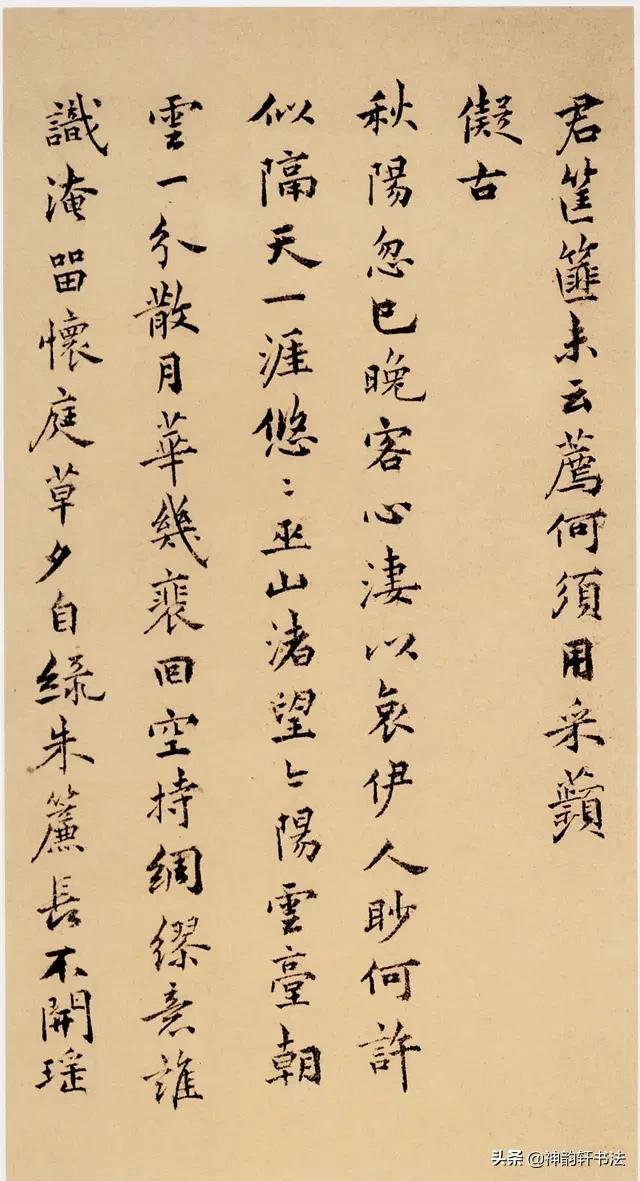 君筐篚未云薦何須用采蘋
儗古
秋陽忽已晚客心淒以哀伊人眇何許
似隔天一涯悠〻巫山渚望〻陽雲臺朝
雲一分散月華幾裴回空持綢繆意誰
識淹留懷庭草夕自綠朱簾長不開瑶
头条 @神韵轩书法